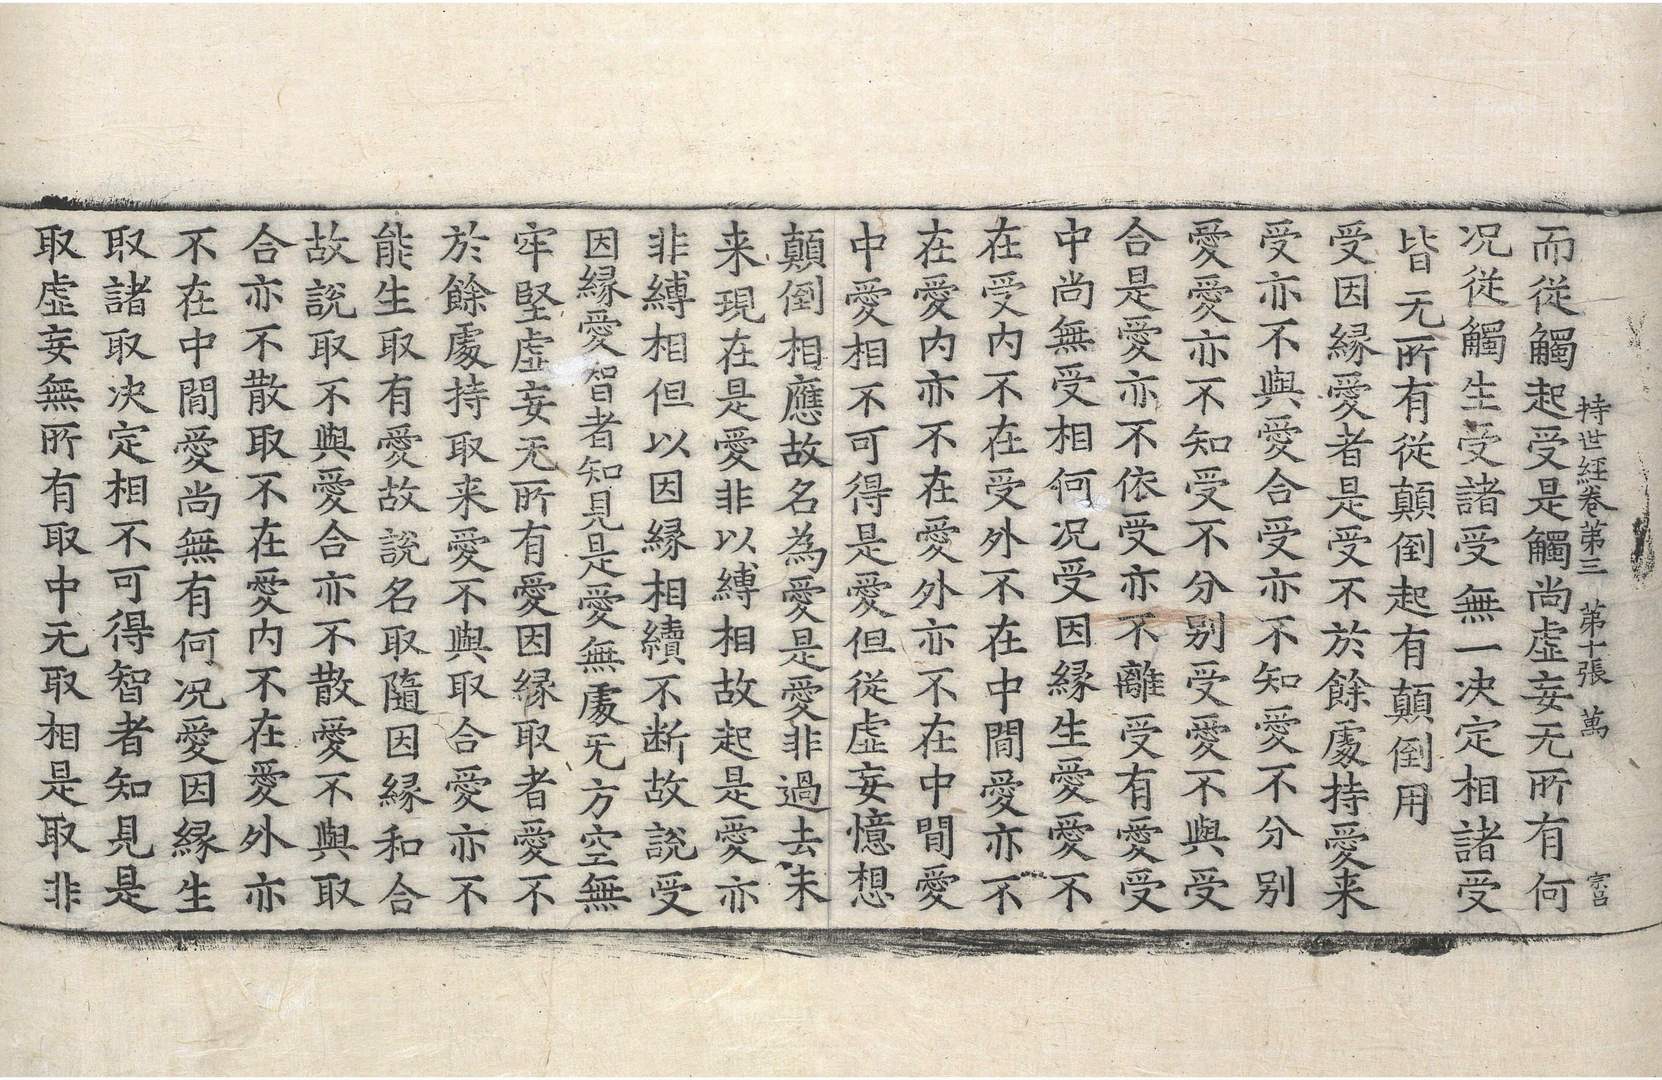 持世經卷第三 第十張 萬 宗呂
而從觸起受是觸尚虛妄无所有何
况從觸生受諸受無一决定相諸受
皆无所有從顛倒起有顛倒用
受因緣愛者是受不於餘處持愛来
受亦不與愛合受亦不知愛不分別
愛愛亦不知受不分別受愛不與受
合是愛亦不依受亦不離受有愛受
中尚無受相何况受因緣生愛愛不
在受内不在受外不在中間愛亦不
在愛内亦不在愛外亦不在中間愛
中愛相不可得是愛但從虛妄憶想
顛倒相應故名為愛是愛非過去未
来現在是愛非以縛相故起是愛亦
非縛相但以因緣相續不断故說受
因緣愛智者知見是愛無處无方空無
牢堅虛妄无所有愛因緣取者愛不
於餘處持取来愛不與取合愛亦不
能生取有愛故說名取隨因緣和合
故說取不與愛合亦不散愛不與取
合亦不散取不在愛内不在愛外亦
不在中間愛尚無有何况愛因緣生
取諸取决定相不可得智者知見是
取虛妄無所有取中无取相是取非